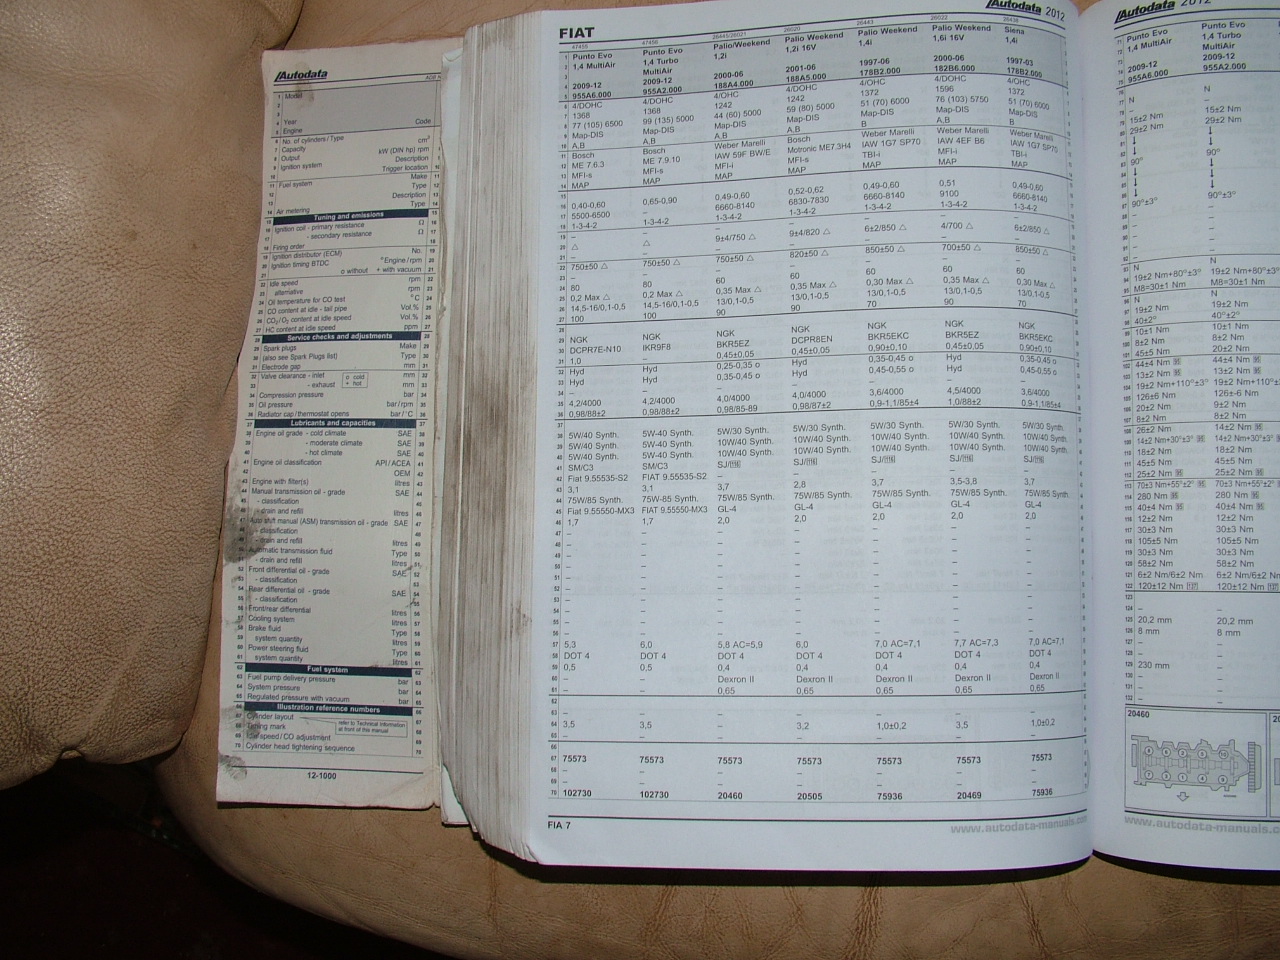 Autodata
Model
Year
Engine Code
No. of cylinders/Type
Capacity cm³
Output kW (DIN hp) rpm
Ignition system Description
Trigger location
Make
Fuel system Type
Description
Air metering Type
Tuning and emissions
Ignition coil - primary resistance Ω
- secondary resistance Ω
Firing order
Ignition distributor (ECM) No.
Ignition timing BTDC °Engine/rpm
o without + with vacuum
Idle speed rpm
alternative rpm
Oil temperature for CO test °C
CO content at idle - tail pipe Vol.%
CO₂/O₂ content at idle speed Vol.%
HC content at idle speed ppm
Service checks and adjustments
Spark plugs Make
(also see Spark Plugs list) Type
Electrode gap mm
Valve clearance - inlet o cold mm
- exhaust + hot mm
Compression pressure bar
Oil pressure bar/rpm
Radiator cap/thermostat opens bar/°C
Lubricants and capacities
Engine oil grade - cold climate SAE
- moderate climate SAE
- hot climate SAE
Engine oil classification API/ACEA
OEM
Engine with filter(s) litres
Manual transmission oil - grade SAE
- classification
- drain and refill litres
Auto shift manual (ASM) transmission oil - grade SAE
- classification
- drain and refill litres
Automatic transmission fluid Type
- drain and refill litres
Front differential oil - grade SAE
- classification
Rear differential oil - grade SAE
- classification
Front/rear differential litres
Cooling system litres
Brake fluid Type
system quantity litres
Power steering fluid Type
system quantity litres
Fuel system
Fuel pump delivery pressure bar
System pressure bar
Regulated pressure with vacuum bar
Illustration reference numbers
Cylinder layout refer to Technical Information
Timing mark at front of this manual
Idle speed/CO adjustment
Cylinder head tightening sequence
12-1000
FIAT Autodata 2012
47455 47456 26445/26021 26020 26443 26022 26436
Punto Evo Punto Evo Palio/Weekend Palio Weekend Palio Weekend Palio Weekend Siena
1,4 MultiAir 1,4 Turbo 1,2i 1,2i 16V 1,4i 1,6i 16V 1,4i
MultiAir
2009-12 2009-12 2000-06 2001-06 1997-06 2000-06 1997-03
955A6.000 955A2.000 188A4.000 188A5.000 178B2.000 182B6.000 178B2.000
4/DOHC 4/DOHC 4/OHC 4/DOHC 4/OHC 4/DOHC 4/OHC
1368 1368 1242 1242 1372 1596 1372
77 (105) 6500 99 (135) 5000 44 (60) 5000 59 (80) 5000 51 (70) 6000 76 (103) 5750 51 (70) 6000
Map-DIS Map-DIS Map-DIS Map-DIS Map-DIS Map-DIS Map-DIS
A,B A,B A,B A,B B A,B B
Bosch Bosch Weber Marelli Bosch Weber Marelli Weber Marelli Weber Marelli
ME 7.6.3 ME 7.9.10 IAW 59F BW/E Motronic ME7.3H4 IAW 1G7 SP70 IAW 4EF B6 IAW 1G7 SP70
MFI-s MFI-s MFI-i MFI-s TBI-i MFI-i TBI-i
MAP MAP MAP MAP MAP MAP MAP
0,40-0,60 0,65-0,90 0,49-0,60 0,52-0,62 0,49-0,60 0,51 0,49-0,60
5500-6500 – 6660-8140 6830-7830 6660-8140 9100 6660-8140
1-3-4-2 1-3-4-2 1-3-4-2 1-3-4-2 1-3-4-2 1-3-4-2 1-3-4-2
– – – – – – –
△ △ 9±4/750 △ 9±4/820 △ 6±2/850 △ 4/700 △ 6±2/850 △
– – – – – – –
750±50 △ 750±50 △ 750±50 △ 820±50 △ 850±50 △ 700±50 △ 850±50 △
– – – – – – –
80 80 60 60 60 60 60
0,2 Max △ 0,2 Max △ 0,35 Max △ 0,35 Max △ 0,30 Max △ 0,35 Max △ 0,30 Max △
14,5-16/0,1-0,5 14,5-16/0,1-0,5 13/0,1-0,5 13/0,1-0,5 13/0,1-0,5 13/0,1-0,5 13/0,1-0,5
100 100 90 90 70 90 70
NGK NGK NGK NGK NGK NGK NGK
DCPR7E-N10 IKR9F8 BKR5EZ DCPR8EN BKR5EKC BKR5EZ BKR5EKC
1,0 – 0,45±0,05 0,45±0,05 0,90±0,10 0,45±0,05 0,90±0,10
Hyd Hyd 0,25-0,35 o Hyd 0,35-0,45 o Hyd 0,35-0,45 o
Hyd Hyd 0,35-0,45 o Hyd 0,45-0,55 o Hyd 0,45-0,55 o
– – – – – – –
4,2/4000 4,2/4000 4,0/4000 4,0/4000 3,6/4000 4,5/4000 3,6/4000
0,98/88±2 0,98/88±2 0,98/85-89 0,98/87±2 0,9-1,1/85±4 1,0/88±2 0,9-1,1/85±4
5W/40 Synth. 5W-40 Synth. 5W/30 Synth. 5W/30 Synth. 5W/30 Synth. 5W/30 Synth. 5W/30 Synth.
5W/40 Synth. 5W-40 Synth. 10W/40 Synth. 10W/40 Synth. 10W/40 Synth. 10W/40 Synth. 10W/40 Synth.
5W/40 Synth. 5W-40 Synth. 10W/40 Synth. 10W/40 Synth. 10W/40 Synth. 10W/40 Synth. 10W/40 Synth.
SM/C3 SM/C3 SJ/116 SJ/116 SJ/116 SJ/116 SJ/116
Fiat 9.55535-S2 FIAT 9.55535-S2 – – – – –
3,1 3,1 3,7 2,8 3,7 3,5-3,8 3,7
75W/85 Synth. 75W-85 Synth. 75W/85 Synth. 75W/85 Synth. 75W/85 Synth. 75W/85 Synth. 75W/85 Synth.
Fiat 9.55550-MX3 FIAT 9.55550-MX3 GL-4 GL-4 GL-4 GL-4 GL-4
1,7 1,7 2,0 2,0 2,0 2,0 2,0
5,3 6,0 5,8 AC=5,9 6,0 7,0 AC=7,1 7,7 AC=7,3 7,0 AC=7,1
DOT 4 DOT 4 DOT 4 DOT 4 DOT 4 DOT 4 DOT 4
0,5 0,5 0,4 0,4 0,4 0,4 0,4
– – Dexron II Dexron II Dexron II Dexron II Dexron II
– – 0,65 0,65 0,65 0,65 0,65
3,5 3,5 – 3,2 1,0±0,2 3,5 1,0±0,2
75573 75573 75573 75573 75573 75573 75573
102730 102730 20460 20505 75936 20469 75936
FIA 7 www.autodata-manuals.com
Autodata 2012
Punto Evo Punto Evo
1,4 MultiAir 1,4 Turbo
MultiAir
2009-12 2009-12
955A6.000 955A2.000
N N
– –
15±2 Nm 15±2 Nm
29±2 Nm 29±2 Nm
90° 90°
90°±3° 90°±3°
N N
19±2 Nm+80°±3° 19±2 Nm+80°±3°
M8=30±1 Nm M8=30±1 Nm
N N
19±2 Nm 19±2 Nm
40±2° 40°±2°
10±1 Nm 10±1 Nm
8±2 Nm 8±2 Nm
45±5 Nm 20±2 Nm
44±4 Nm 95 44±4 Nm 95
13±2 Nm 95 13±2 Nm 95
19±2 Nm+110°±3° 19±2 Nm+110°±3°
126±6 Nm 126±-6 Nm
20±2 Nm 9±2 Nm
8±2 Nm 8±2 Nm
26±2 Nm 14±2 Nm 95
14±2 Nm+30°±3° 95 14±2 Nm+30°±3°
18±2 Nm 18±2 Nm
45±5 Nm 45±5 Nm
25±2 Nm 95 25±2 Nm 95
70±3 Nm+55°±2° 95 70±3 Nm+55°±2°
280 Nm 95 280 Nm 95
40±4 Nm 95 40±4 Nm 95
12±2 Nm 12±2 Nm
30±3 Nm 30±3 Nm
105±5 Nm 105±5 Nm
30±3 Nm 30±3 Nm
58±2 Nm 58±2 Nm
6±2 Nm/6±2 Nm 6±2 Nm/6±2 Nm
120±12 Nm 137 120±12 Nm
20,2 mm 20,2 mm
8 mm 8 mm
230 mm –
20460
www.autodata-manuals